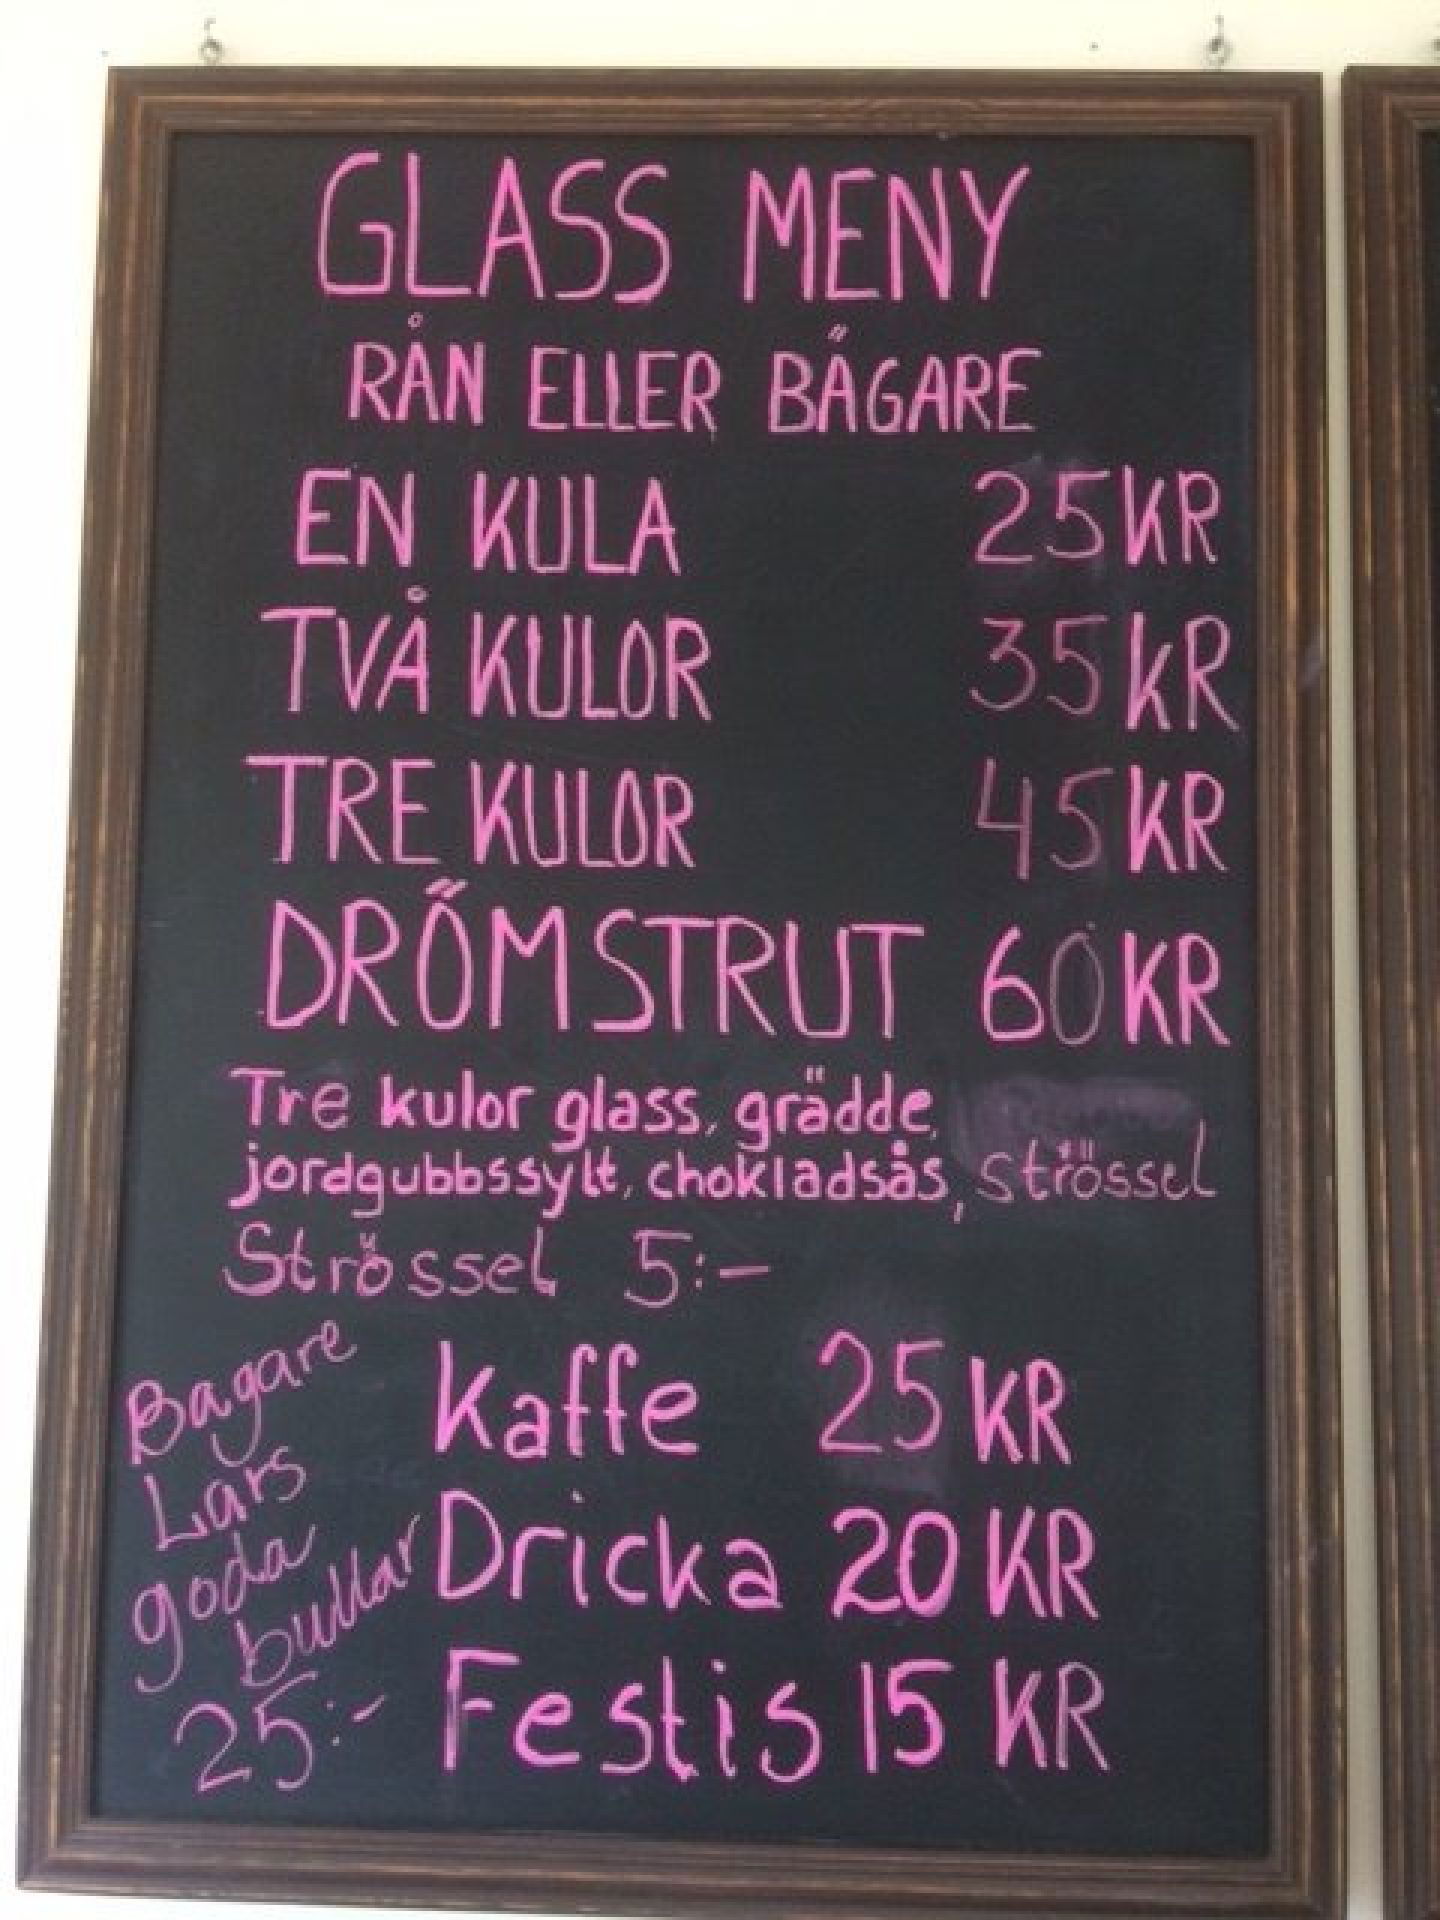 GLASS MENY
RÅN ELLER BÄGARE
EN KULA 25KR
TVÅ KULOR 35KR
TRE KULOR 45KR
DRÖMSTRUT 60KR
Tre kulor glass, grädde,
jordgubbssylt, chokladsås, strössel
Strössel 5:-
Bagare
Lars
goda
bullar
25:-
Kaffe 25KR
Dricka 20KR
Festis 15KR